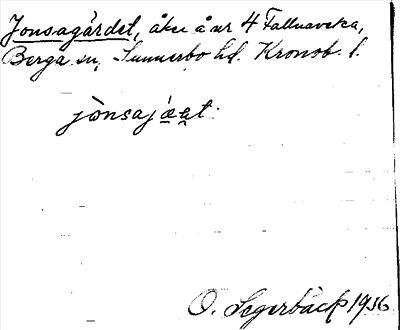 Jonsagärdet, åker å nr 4 Fallnaveka,
Berga sn, Sunnerbo hd. Kronob. l.
jònsajá̱a̱t.
O. Segerbäck 1936